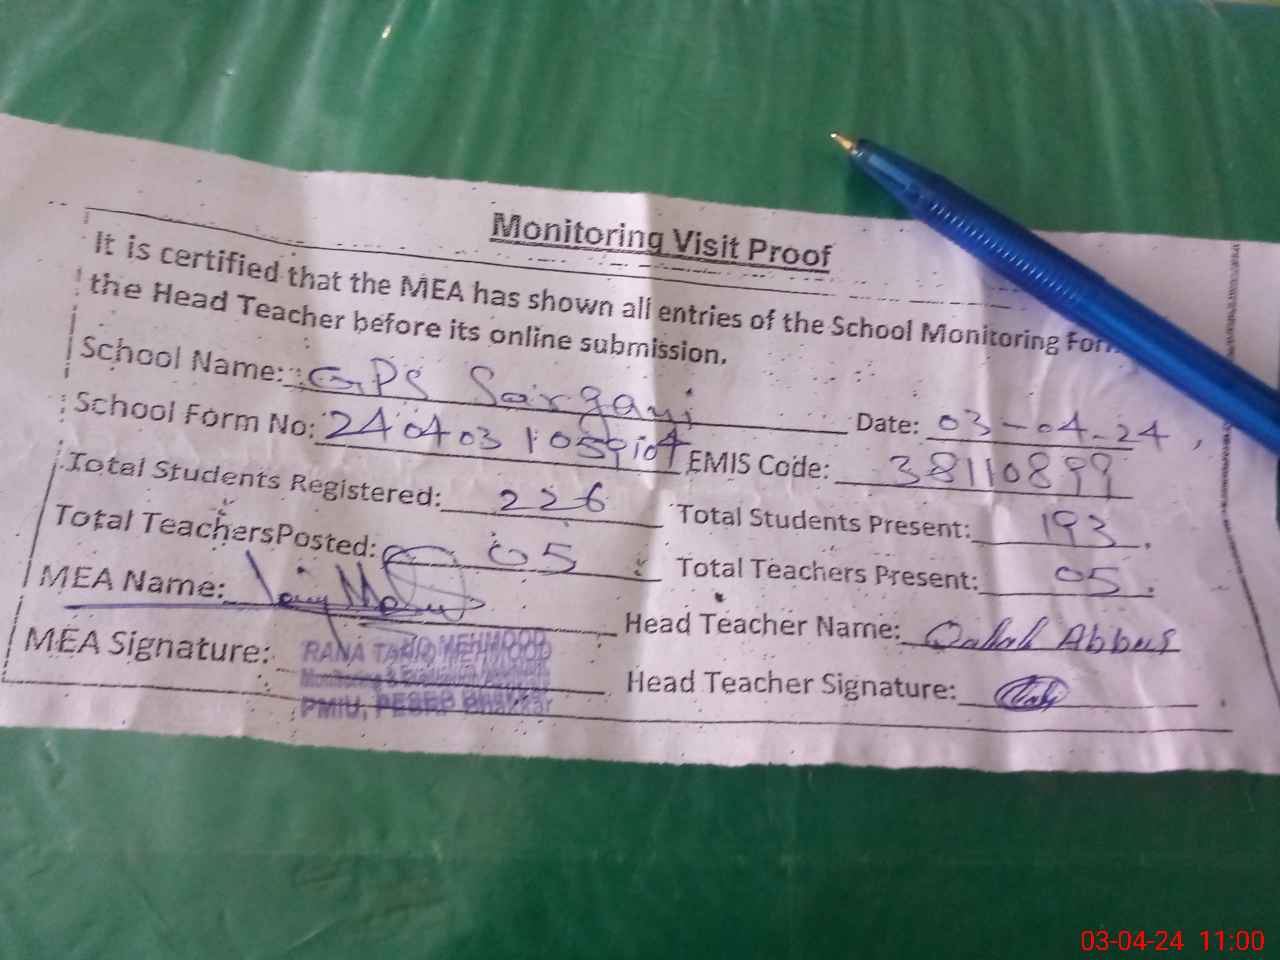 Monitoring Visit Proof
It is certified that the MEA has shown all entries of the School Monitoring For
the Head Teacher before its online submission.
School Name: GPS Sargayi Date: 03-04-24
School Form No: EMIS Code: 38110899
Total Students Registered: 226 Total Students Present: 193
Total TeachersPosted: 05 Total Teachers Present: 05
MEA Name: Head Teacher Name: Abbas
MEA Signature: Head Teacher Signature:
RANA TARIQ MEHMOOD
Monitoring & Evaluation
PMIU, PESRP Bhakkar
03-04-24 11:00